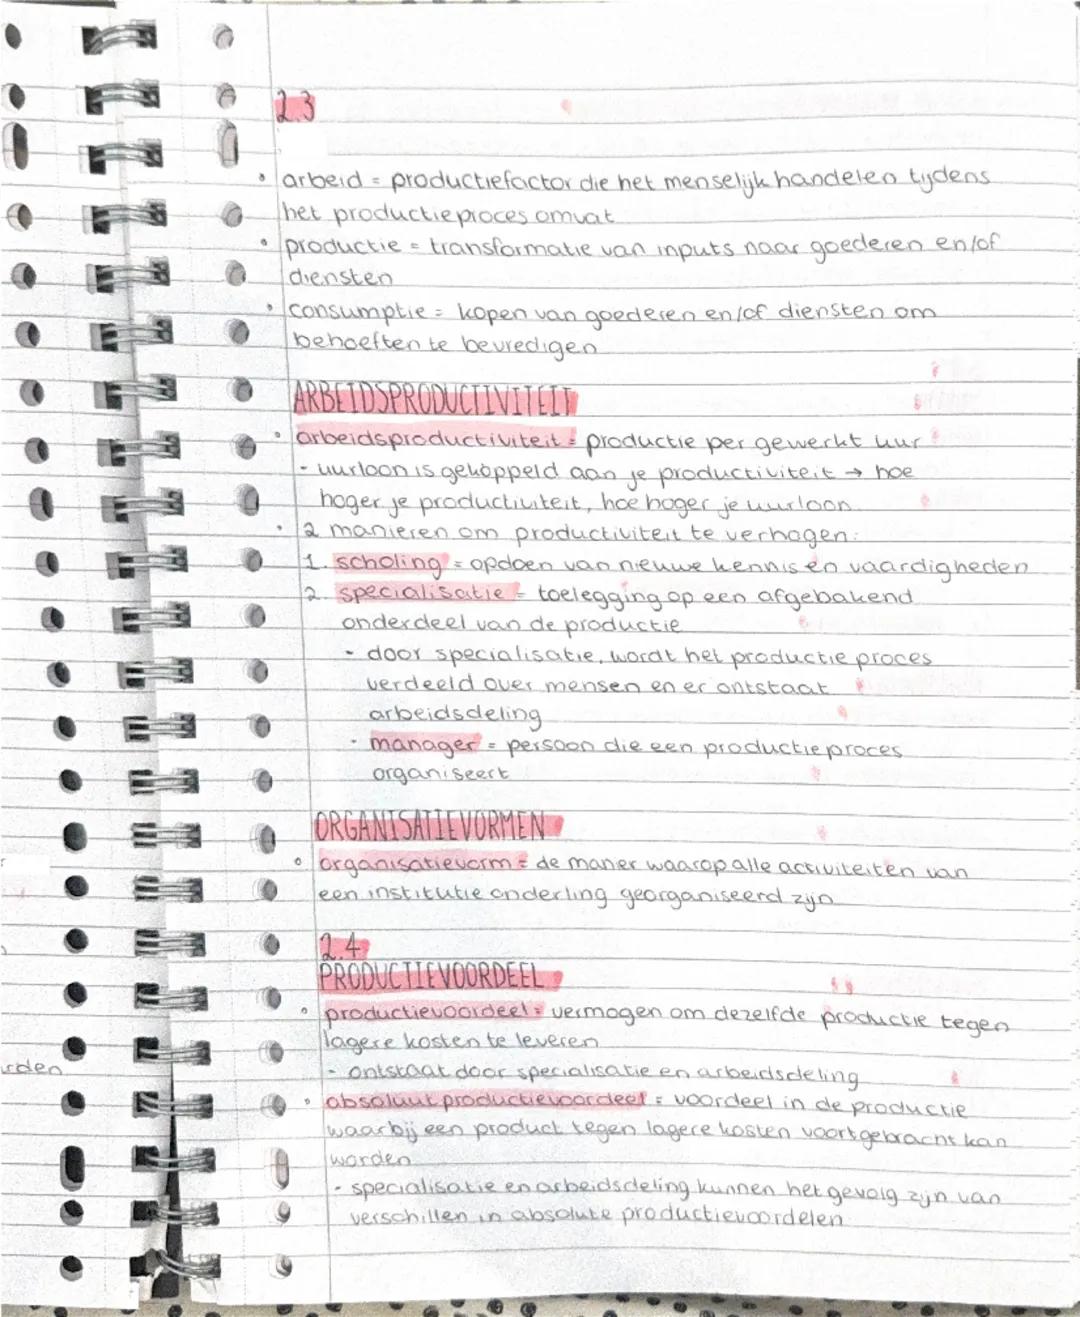 2.3
• arbeid = productiefactor die het menselijk handelen tijdens
het productieproces omvat
• productie = transformatie van inputs naar goederen en/of
diensten
• consumptie = kopen van goederen en/of diensten om
behoeften te bevredigen
ARBEIDSPRODUCTIVITEIT
• arbeidsproductiviteit = productie per gewerkt uur
- uurloon is gekoppeld aan je productiviteit → hoe
hoger je productiviteit, hoe hoger je uurloon.
• 2 manieren om productiviteit te verhogen:
1. scholing = opdoen van nieuwe kennis en vaardigheden
2. specialisatie = toelegging op een afgebakend
onderdeel van de productie
- door specialisatie, wordt het productieproces
verdeeld over mensen en er ontstaat
arbeidsdeling
- manager = persoon die een productieproces
organiseert
ORGANISATIEVORMEN
• organisatievorm = de manier waarop alle activiteiten van
een institutie onderling georganiseerd zijn
2.4
PRODUCTIEVOORDEEL
• productievoordeel = vermogen om dezelfde productie tegen
lagere kosten te leveren
- ontstaat door specialisatie en arbeidsdeling
rden
• absoluut productievoordeel = voordeel in de productie
waarbij een product tegen lagere kosten voortgebracht kan
worden
- specialisatie en arbeidsdeling kunnen het gevolg zijn van
verschillen in absolute productievoordelen